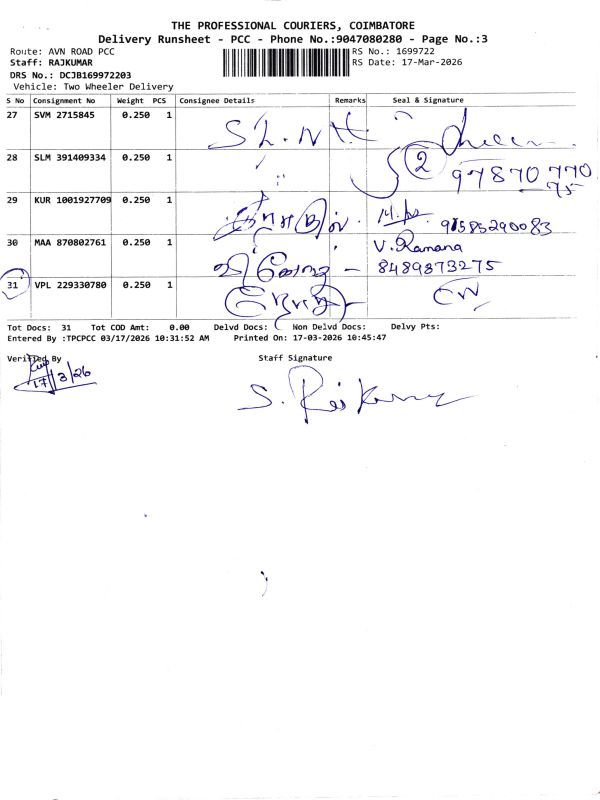 THE PROFESSIONAL COURIERS, COIMBATORE
Delivery Runsheet - PCC - Phone No.:9047080280 - Page No.:3
Route: AVN ROAD PCC RS No.: 1699722
Staff: RAJKUMAR RS Date: 17-Mar-2026
DRS No.: DCJB169972203
Vehicle: Two Wheeler Delivery
S No Consignment No Weight PCS Consignee Details Remarks Seal & Signature
27 SVM 2715845 0.250 1
28 SLM 391409334 0.250 1 2 97870 770
75
29 KUR 1001927709 0.250 1 9585290083
30 MAA 870802761 0.250 1 V. Ramana
8489373275
31 VPL 229330780 0.250 1
Tot Docs: 31 Tot COD Amt: 0.00 Delvd Docs: Non Delvd Docs: Delvy Pts:
Entered By :TPCPCC 03/17/2026 10:31:52 AM Printed On: 17-03-2026 10:45:47
Verified By Staff Signature
17/3/26
S. Raj Kumar